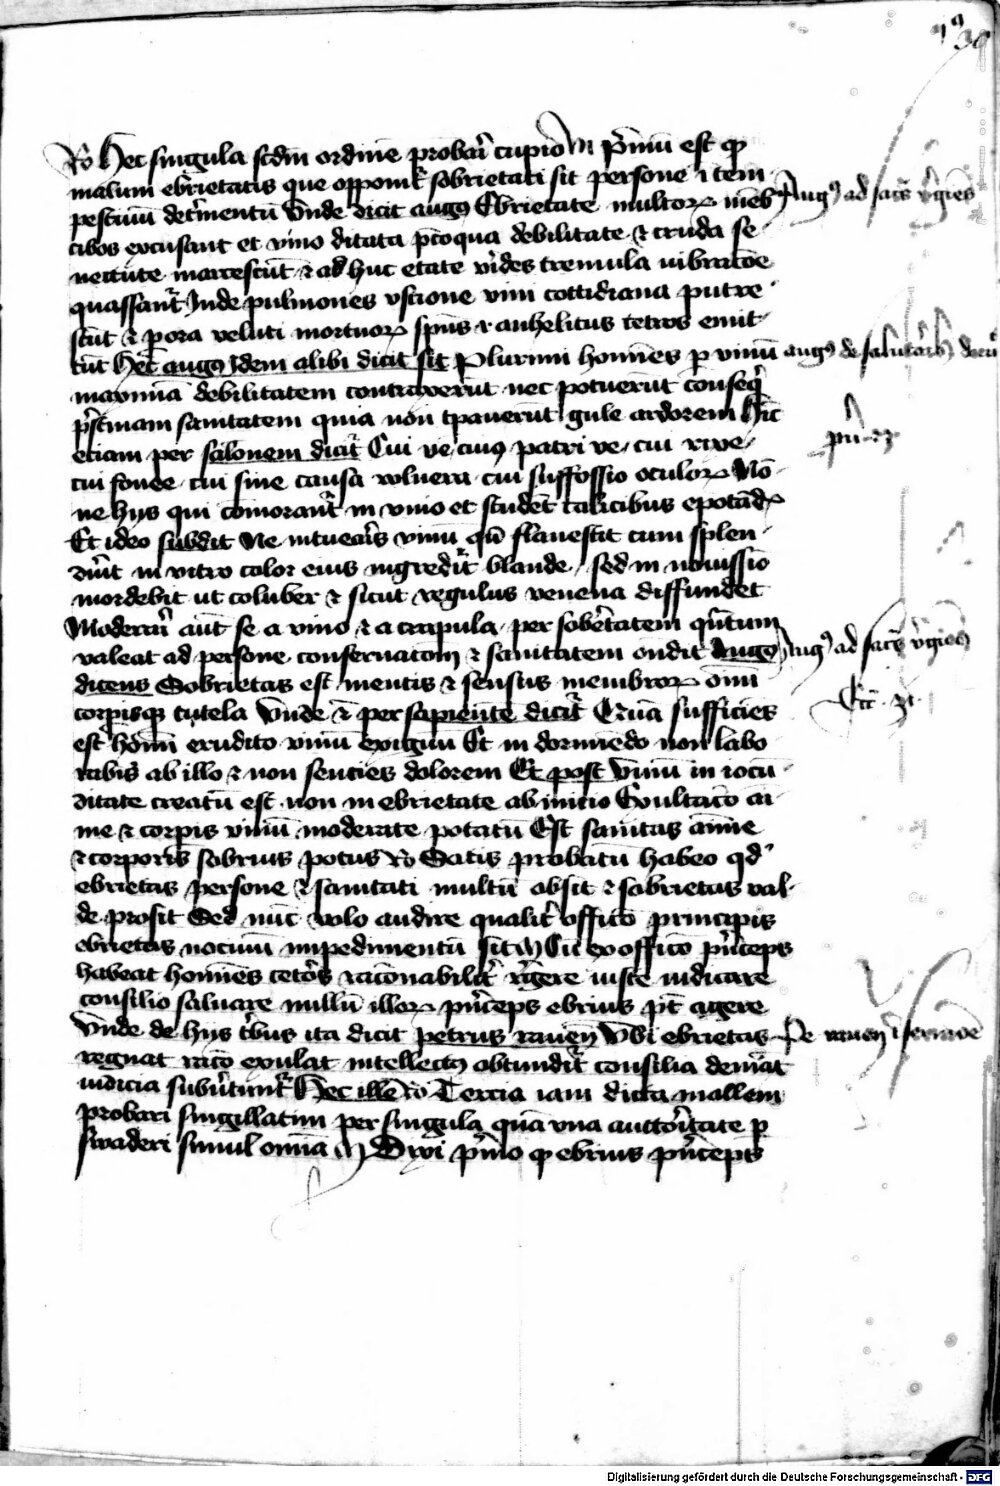 Ro Hec singula scdm ordine probari cupio M Primu est qp
malum ebrietatis que opponit sobrietati sit persone item
pestiuu detrimentu Vnde dicit augus Ebrietate multor meb
cibos excusant et vino ditata pcoqua debilitate & cruda se
nectute marcescut & ad huc etate vides tremula uibracoe
quassant Inde pulmones vstione vini cottidiana putre
scut & pora veluti mortuor spus & anhelitus tetros emit
tut Hec augus Idem alibi dicit sic Plurimi homies p vinu
maxima debilitatem contraxerut nec potuerut conseq
pristinam sanitatem quia non tpauerut gule ardorem Hic
etiam per salonem dicit Cui ve cuius patri ve cui rixe
cui fouee cui sine causa vulnera cui suffossio oculor No
ne hys qui comorant in vino et student calicibus epotad
Et ideo subdit Ne intuearis vinu qn flauescit cum splen
duit in vitro color eius ingredit blande sed in nouissio
mordebit ut coluber & sicut regulus venena diffundet
Moderari aut se a vino & a crapula per sobrietatem quntum
valeat ad persone conseruacom & sanitatem ondit Augus
dicens Sobrietas est mentis & sensus membror oim
corpisqp tutela Vnde & per sapiente dicit Qua sufficies
est homi erudito vinu exiguu Et in dormiedo non labo
rabis ab illo & non senties dolorem Et post Vinu in iocu
ditate creatu est non in ebrietate ab initio Exultaco ai
me & corpis vinu moderate potatu Est sanitas anime
& corporis sobrius potus Ro Satis probatu habeo qd
ebrietas persone & sanitati multu obsit & sobrietas val
de prosit Sed nuc volo audire qualit officio principis
ebrietas nociuu impedimentu sit M Cu ex officio princeps
habeat homies ceteros racionabilit regere iuste iudicare
consilio saluare nullu illor princeps ebrius pt agere
Vnde de hys tribus ita dicit petrus rauen Vbi ebrietas
regnat raco exulat intellectus obtundit consilia deuiat
iudicia subuertunt Hec ille Ro Tercia iam dicta mallem
probari singillatim per singula qua vna auctoritate p
swaderi simul omia M Dixi primo qp ebrius princeps
Augus ad sacras virgies
augus de salutaribus docu
Augus ad sacras virgies
Pe rauen i sermoe
Digitalisierung gefördert durch die Deutsche Forschungsgemeinschaft - DFG